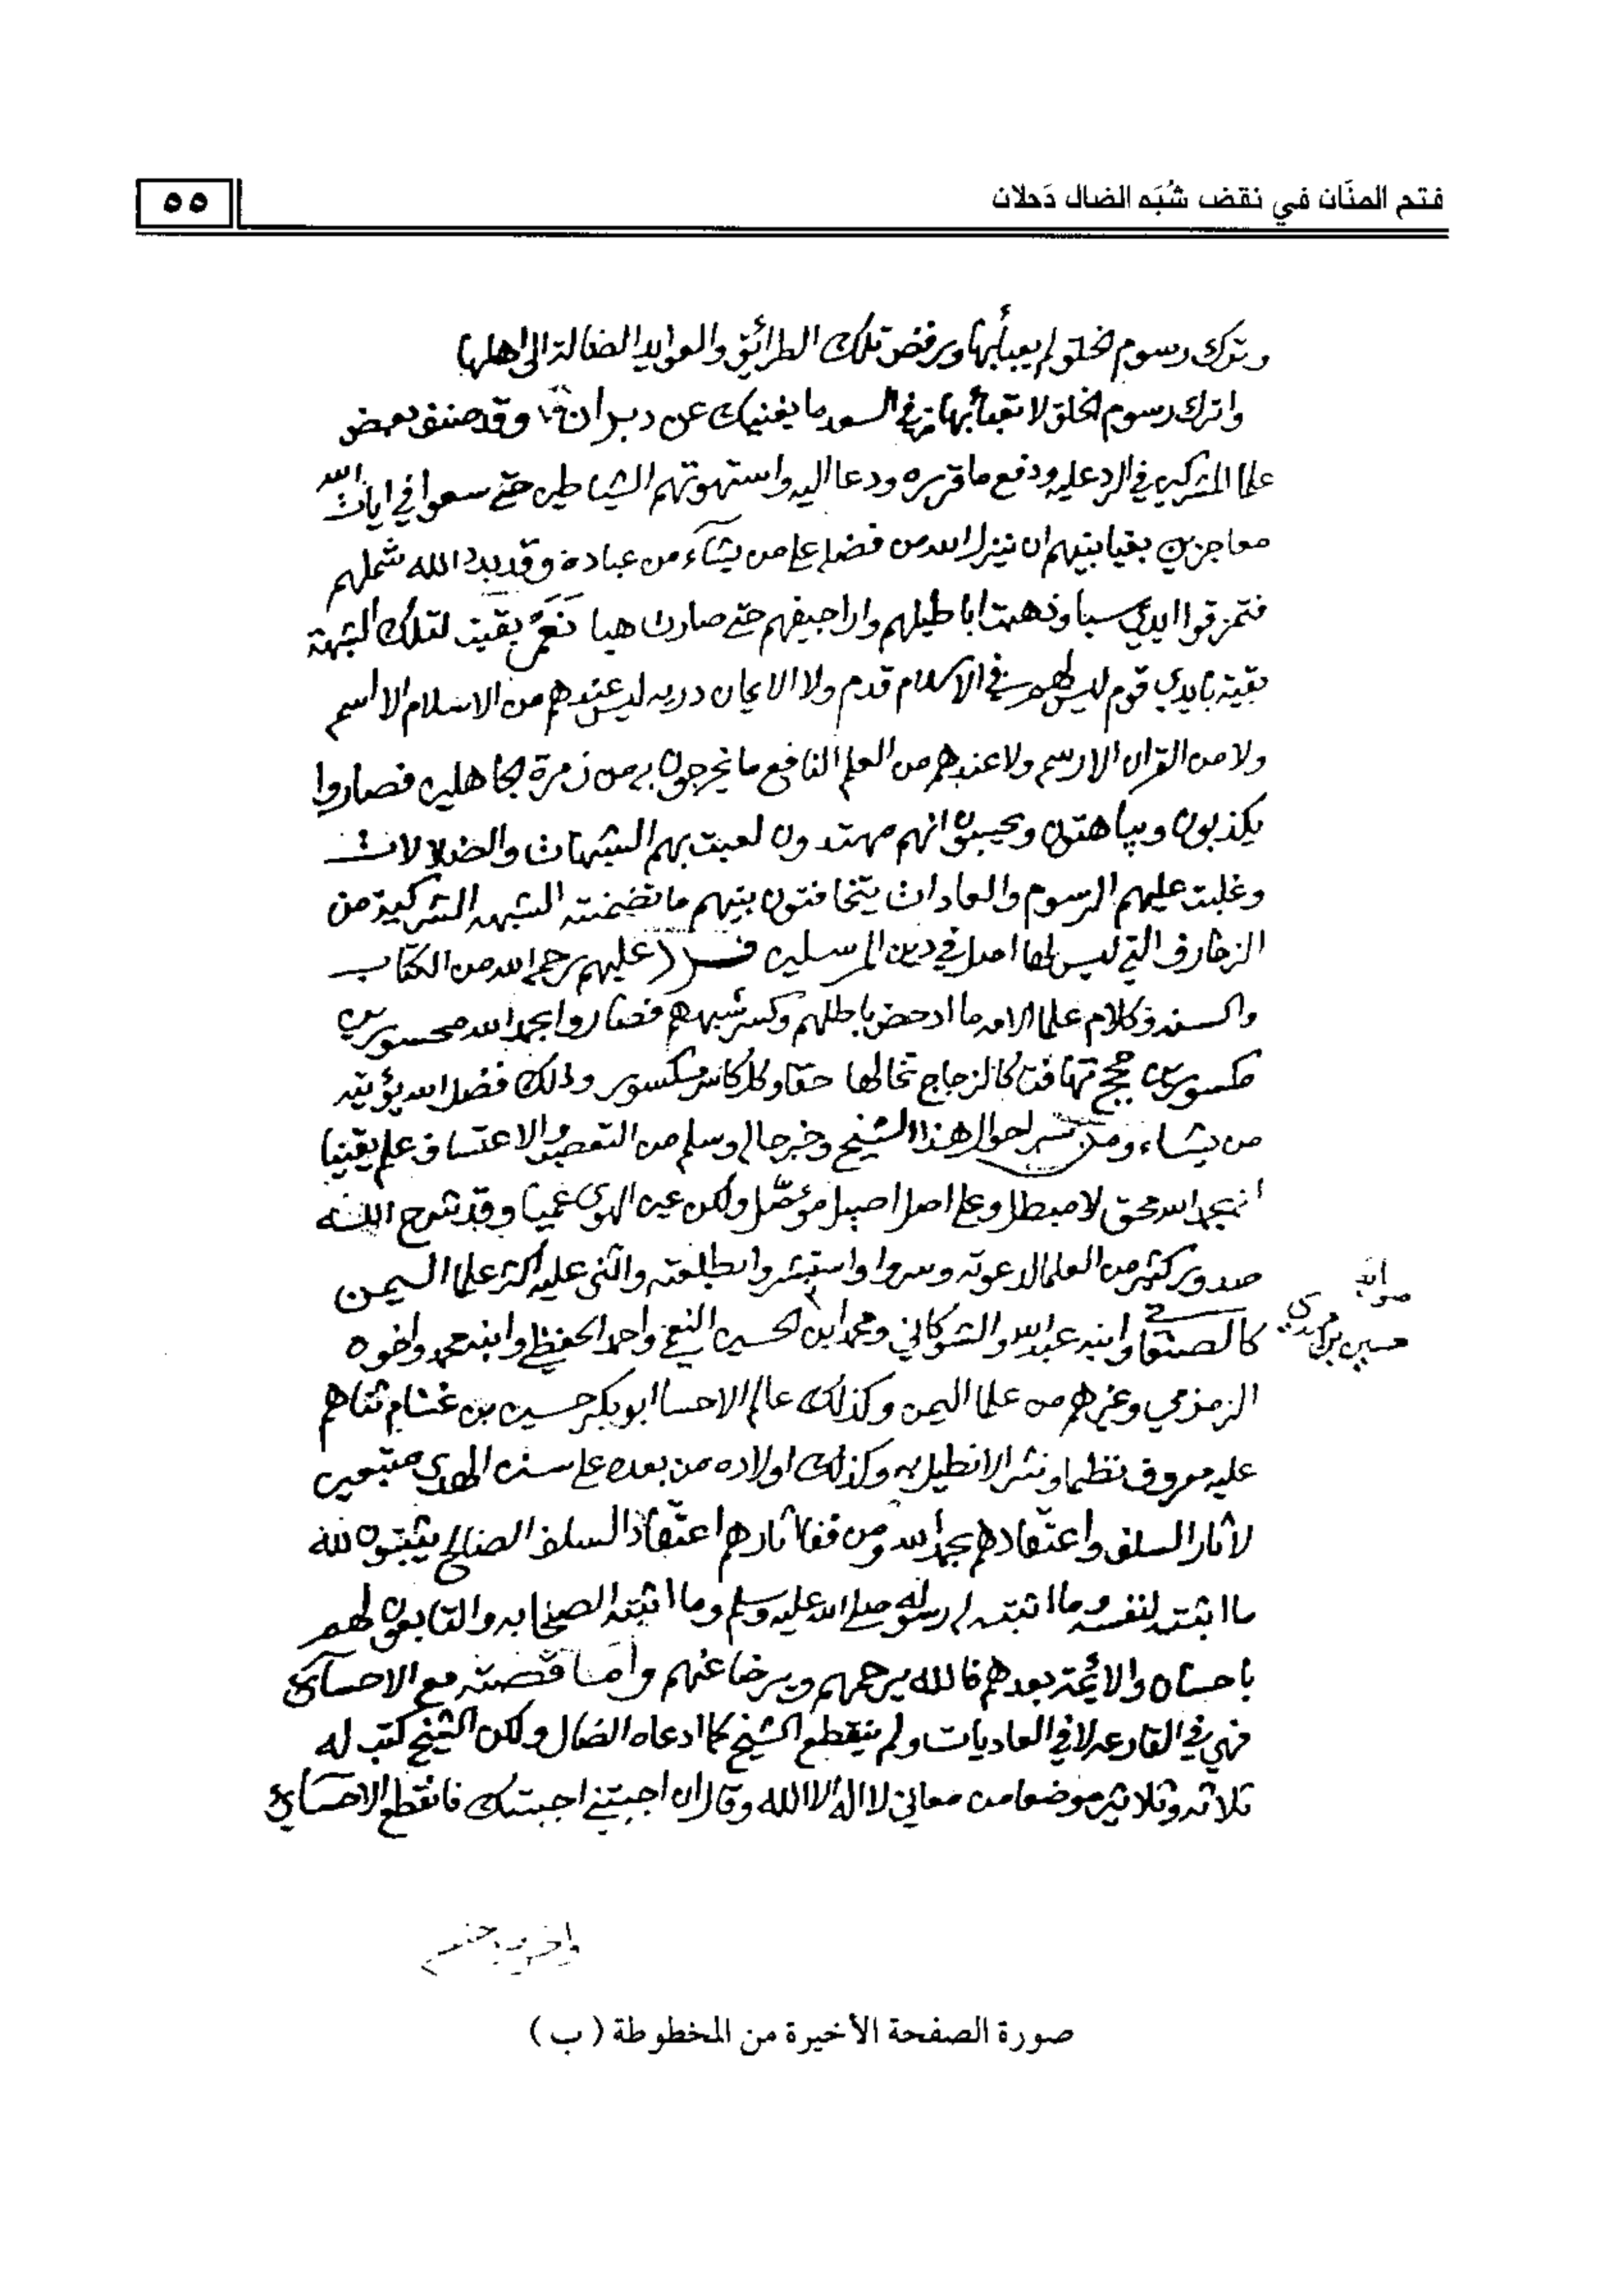 فتح المنَّان في نقض شُبَه الضال دَحلان
٥٥
وترك رسوم الخلق لم يعبأ بها ورفض تلك الطرائق والعوايد الضالة الى اهلها
واترك رسوم الخلق لا تعبأ بها في السعد ما يغنيك عن دبران وقد صنف بعض
علما المشركين في الرد عليه ودفع ما قرره ودعا اليه واستهوتهم الشياطين حتى سعوا في ايات الله
معاجزين بغيا بينهم ان ينزل الله من فضله على من يشآء من عباده وقد بدد الله شملهم
فتمزقوا ايدي سبا وذهبت اباطيلهم واراجيفهم حتى صارت هبا نَعَمْ بقيت لتلك الشبهة
بقية بايدي قوم ليس لهم في الاسلام قدم ولا الايمان دريه ليس عندهم من الاسلام الا اسم
ولا من القران الا رسم ولا عندهم من العلم النافع ما يخرجون به من زمرة الجاهلين فصاروا
يكذبون ويباهتون ويحسبون انهم مهتدون لعبت بهم الشبهات والضلالات
وغلبت عليهم الرسوم والعادات يتخافتون بينهم ما تضمنته الشبهه الشركية من
الزخارف التي ليس لها اصل في دين المرسلين فرد عليهم رحمه الله من الكتاب
والسنه وكلام علما الامه ما ادحض باطلهم وكسر شبههم فصاروا بحمد الله محسورين
مكسورين حجج تهافت كالزجاج تخالها حقا وكل كاسر مكسور وذلك فضل الله يؤتيه
من يشاء ومن احوال هذا الشيخ وخبر حاله وسلم من التعصب والاعتساف علم يقينا
انه بحمد الله محق لا مبطل وعلى اصل اصيل مؤصّل ولكن عين الهوى عميا وقد شرح الله
صدور كثير من العلما لدعوته وسروا واستبشروا بطلعته واثنى عليه اكثر علما اليمن
كالصنعاني وابنه عبد الله والشوكاني ومحمد ابن الحسين النعمي واحمد الحفظي وابنه محمد واخوه
الزمزمي وغيرهم من علما اليمن وكذلك عالم الاحسا ابو بكر حسين بن غنام ثناهم
عليه معروف نظما ونثرا لا نطيل به وكذلك اولاده من بعده على سنن الهدى متبعين
لاثار السلف واعتقادهم بحمد الله ومن قفا اثارهم اعتقاد السلف الصالح يثبتون لله
ما اثبته لنفسه وما اثبته له رسوله صلى الله عليه وسلم وما اثبته الصحابه والتابعون لهم
باحسان والائمة بعدهم فالله يرحمهم ويرضا عنهم وأما قصته مع الاحسآئي
فهي في القارعه لا في العاديات ولم ينقطع الشيخ كما ادعاه الضال ولكن الشيخ كتب له
ثلاثه وثلاثين موضعا من معاني لا اله الا الله وقال ان اجبتني اجبتك فانقطع الاحسآئي
صورة الصفحة الأخيرة من المخطوطة (ب)